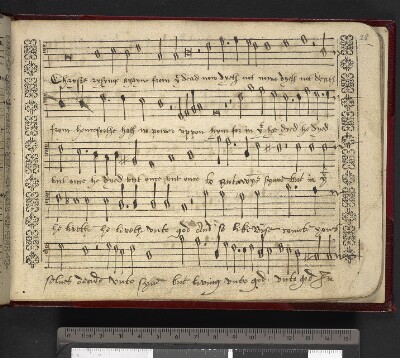 28
Chryste rysyng agayne from yͤ dead now dyeth not now dyeth not deathe
from henceforthe hath no power uppon hym for in yͭ he dyed he dyed
but once he dyed but once but once to put awaye synne but in yͭ
he liveth he liveth unto god and so likewise counte your
selves deade unto synne but living unto god unto god In